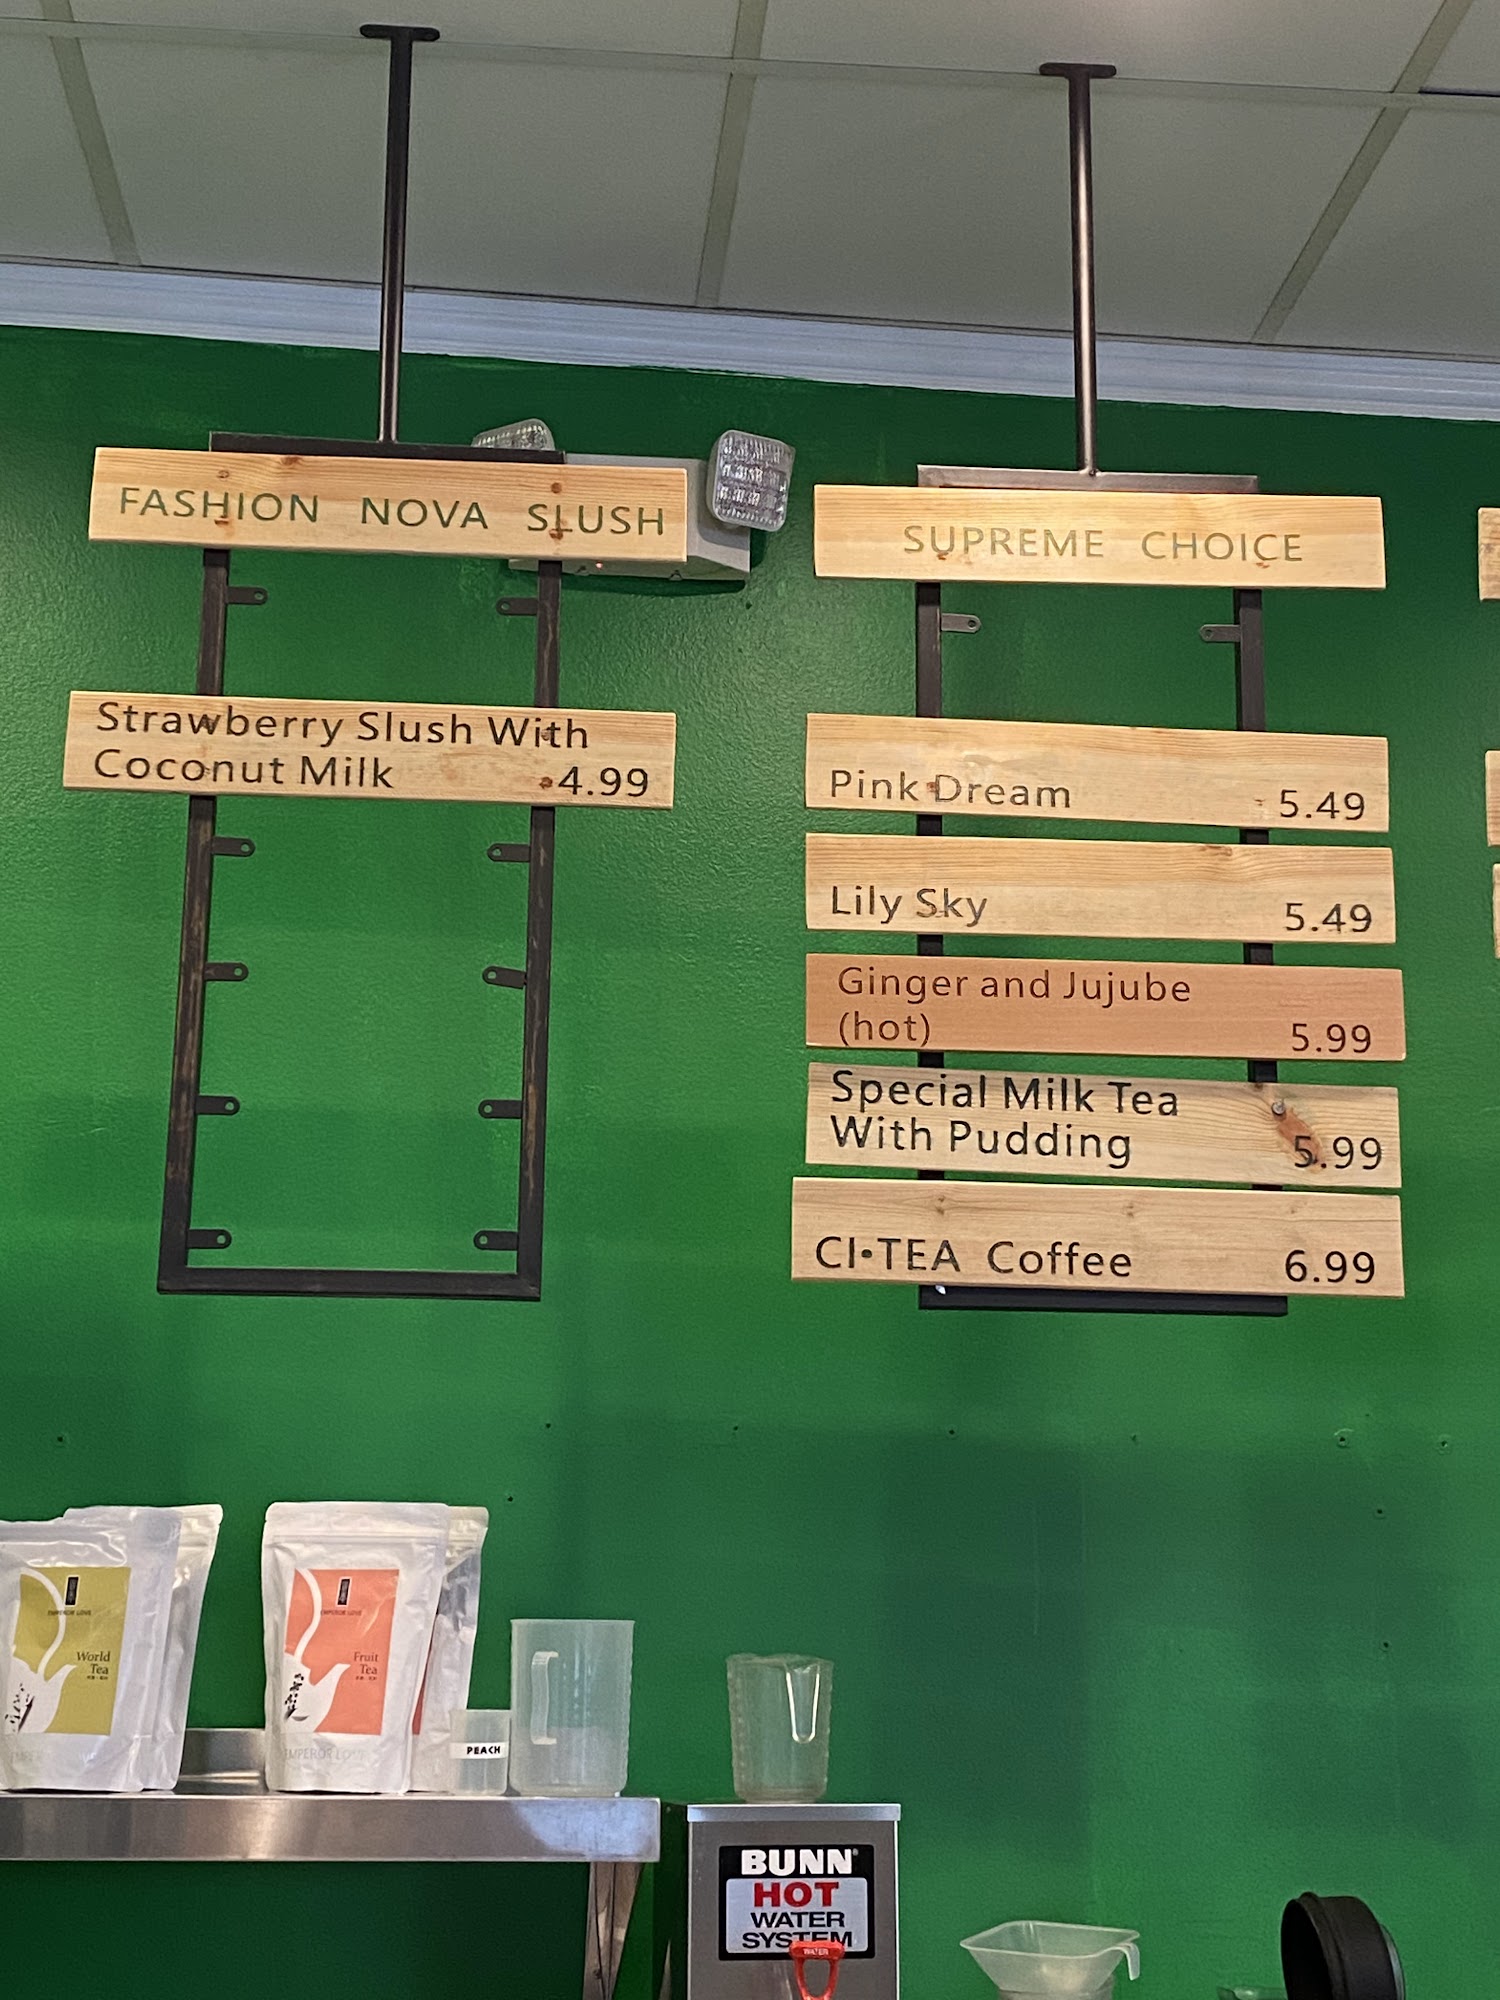 FASHION NOVA SLUSH
Strawberry Slush With
Coconut Milk 4.99
SUPREME CHOICE
Pink Dream 5.49
Lily Sky 5.49
Ginger and Jujube
(hot) 5.99
Special Milk Tea
With Pudding 5.99
CI•TEA Coffee 6.99
EMPEROR LOVE
World
Tea
EMPEROR LOVE
Fruit
Tea
EMPEROR LOVE
PEACH
BUNN
HOT
WATER
SYSTEM
WATER